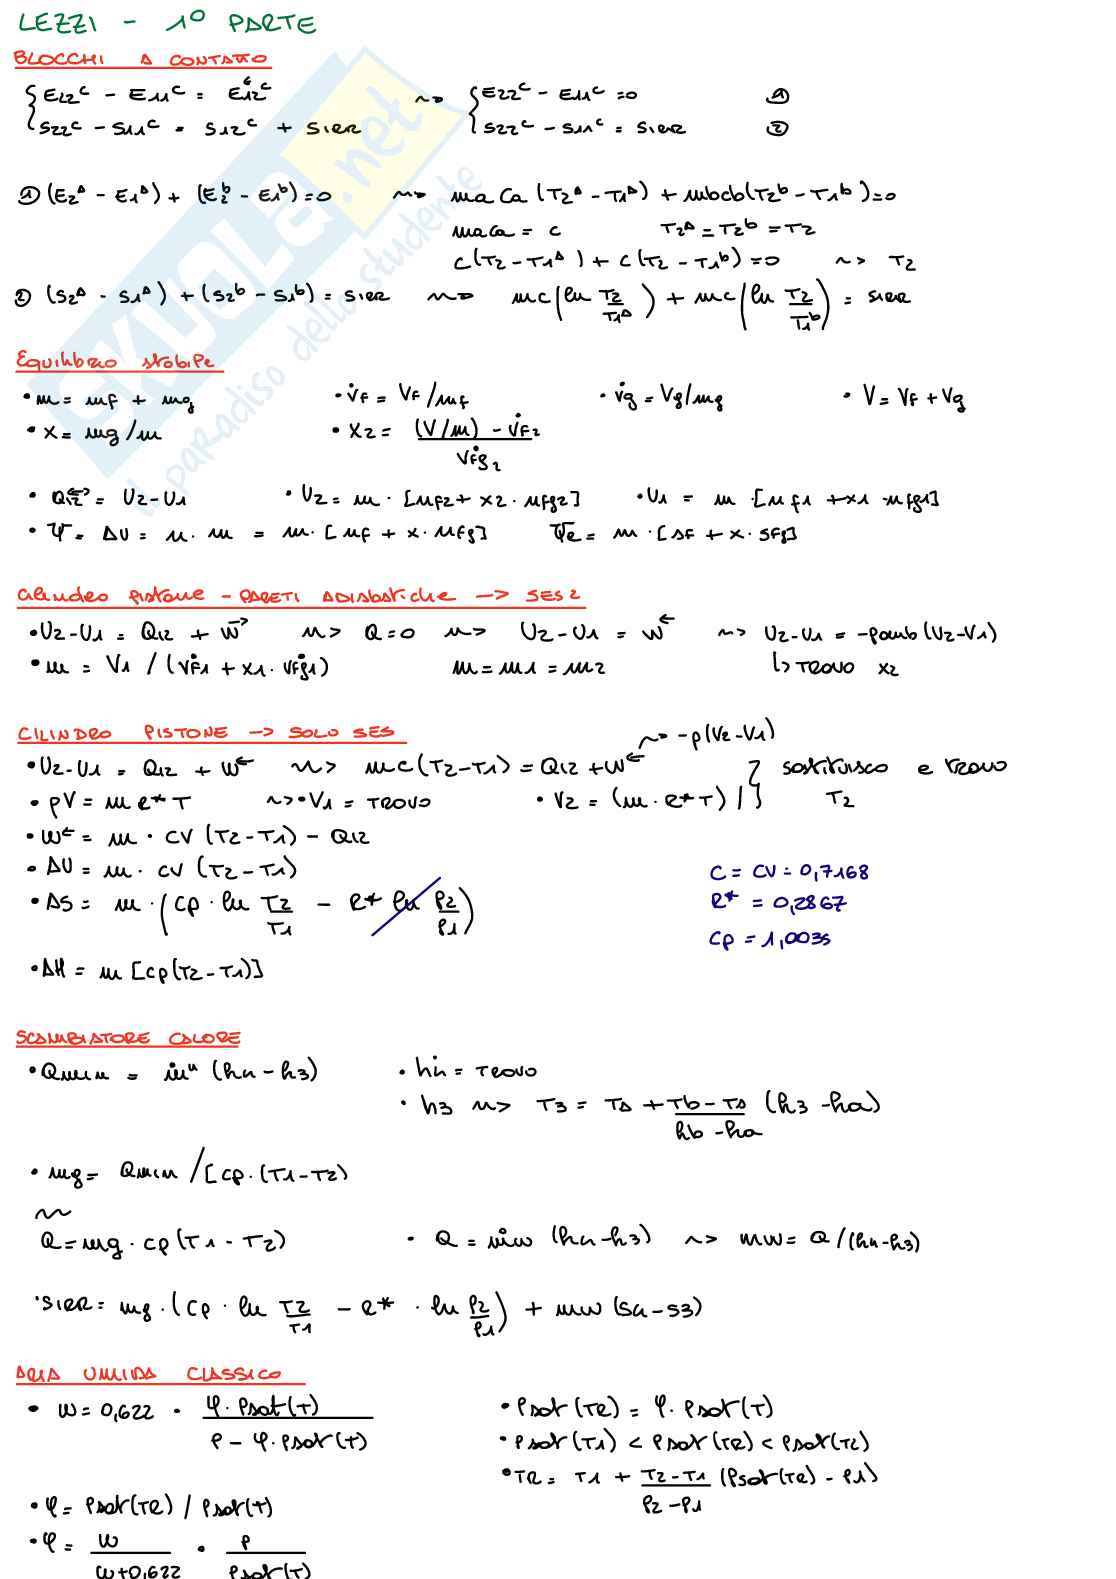 LEZZI - 1° PARTE
BLOCCHI A CONTATTO
{ E22ᶜ - E11ᶜ = E12ᶜ← ~> { E22ᶜ - E11ᶜ = 0 ①
S22ᶜ - S11ᶜ = S12ᶜ + SIRR S22ᶜ - S11ᶜ = SIRR ②
① (E2ᴬ - E1ᴬ) + (E2ᵇ - E1ᵇ) = 0 ~> ma Ca (T2ᴬ - T1ᴬ) + mbcb(T2ᵇ - T1ᵇ) = 0
maca = c T2ᴬ = T2ᵇ = T2
c(T2 - T1ᴬ) + c(T2 - T1ᵇ) = 0 ~> T2
② (S2ᴬ - S1ᴬ) + (S2ᵇ - S1ᵇ) = SIRR ~> mc(ln T2/T1ᴬ) + mc(ln T2/T1ᵇ) = SIRR
Equilibrio stabile
• m = mf + mg • v̇f = Vf/mf • v̇g = Vg/mg • V = Vf + Vg
• x = mg/m • X2 = (V/m) - v̇f2 / v̇fg2
• Q12⇄ = U2 - U1 • U2 = m · [uf2 + x2 · ufg2] • U1 = m · [uf1 + x1 · ufg1]
• Ψ = ΔU = u · m = m · [uf + x · ufg] Ψe = m · [sf + x · sfg]
Cilindro pistone - PARETI ADIABATiche -> SES2
• U2 - U1 = Q12 + W→ ~> Q = 0 ~> U2 - U1 = W← ~> U2 - U1 = -pamb(V2 - V1)
• m = V1 / (v̇f1 + x1 · v̇fg1) m = m1 = m2 ↳ TROVO x2
CILINDRO PISTONE -> SOLO SES
~> -p(V2 - V1)
• U2 - U1 = Q12 + W← ~> mc(T2 - T1) = Q12 + W← } sostituisco e trovo
• pV = m R* T ~> • V1 = TROVO • V2 = (m · R* T) / } T2
• W← = m · cv (T2 - T1) - Q12
• ΔU = m · cv (T2 - T1)
C = CV = 0,7168
• ΔS = m · (cp · ln T2/T1 - R* ln P2/P1)
R* = 0,2867
Cp = 1,0035
• ΔH = m [cp(T2 - T1)]
SCAMBIATORE CALORE
• Qmin = ṁu (h4 - h3) • h4 = TROVO
• h3 ~> T3 = TA + Tb - TA / hb - ha (h3 - ha)
• mg = Qmin / [cp · (T1 - T2)
~
Q = mg · cp (T1 - T2) • Q = ṁw (h4 - h3) ~> mw = Q / (h4 - h3)
• SIRR = mg · (cp · ln T2/T1 - R* · ln P2/P1) + mw (s4 - s3)
ARIA UMIDA CLASSICO
• W = 0,622 · φ · Psat(T) / P - φ · Psat(T) • Psat (TR) = φ · Psat (T)
• Psat (T1) < Psat (TR) < Psat (T2)
• TR = T1 + T2 - T1 / P2 - P1 (Psat(TR) - P1)
• φ = Psat(TR) / Psat(T)
• φ = W / W + 0,622 · P / Psat(T)